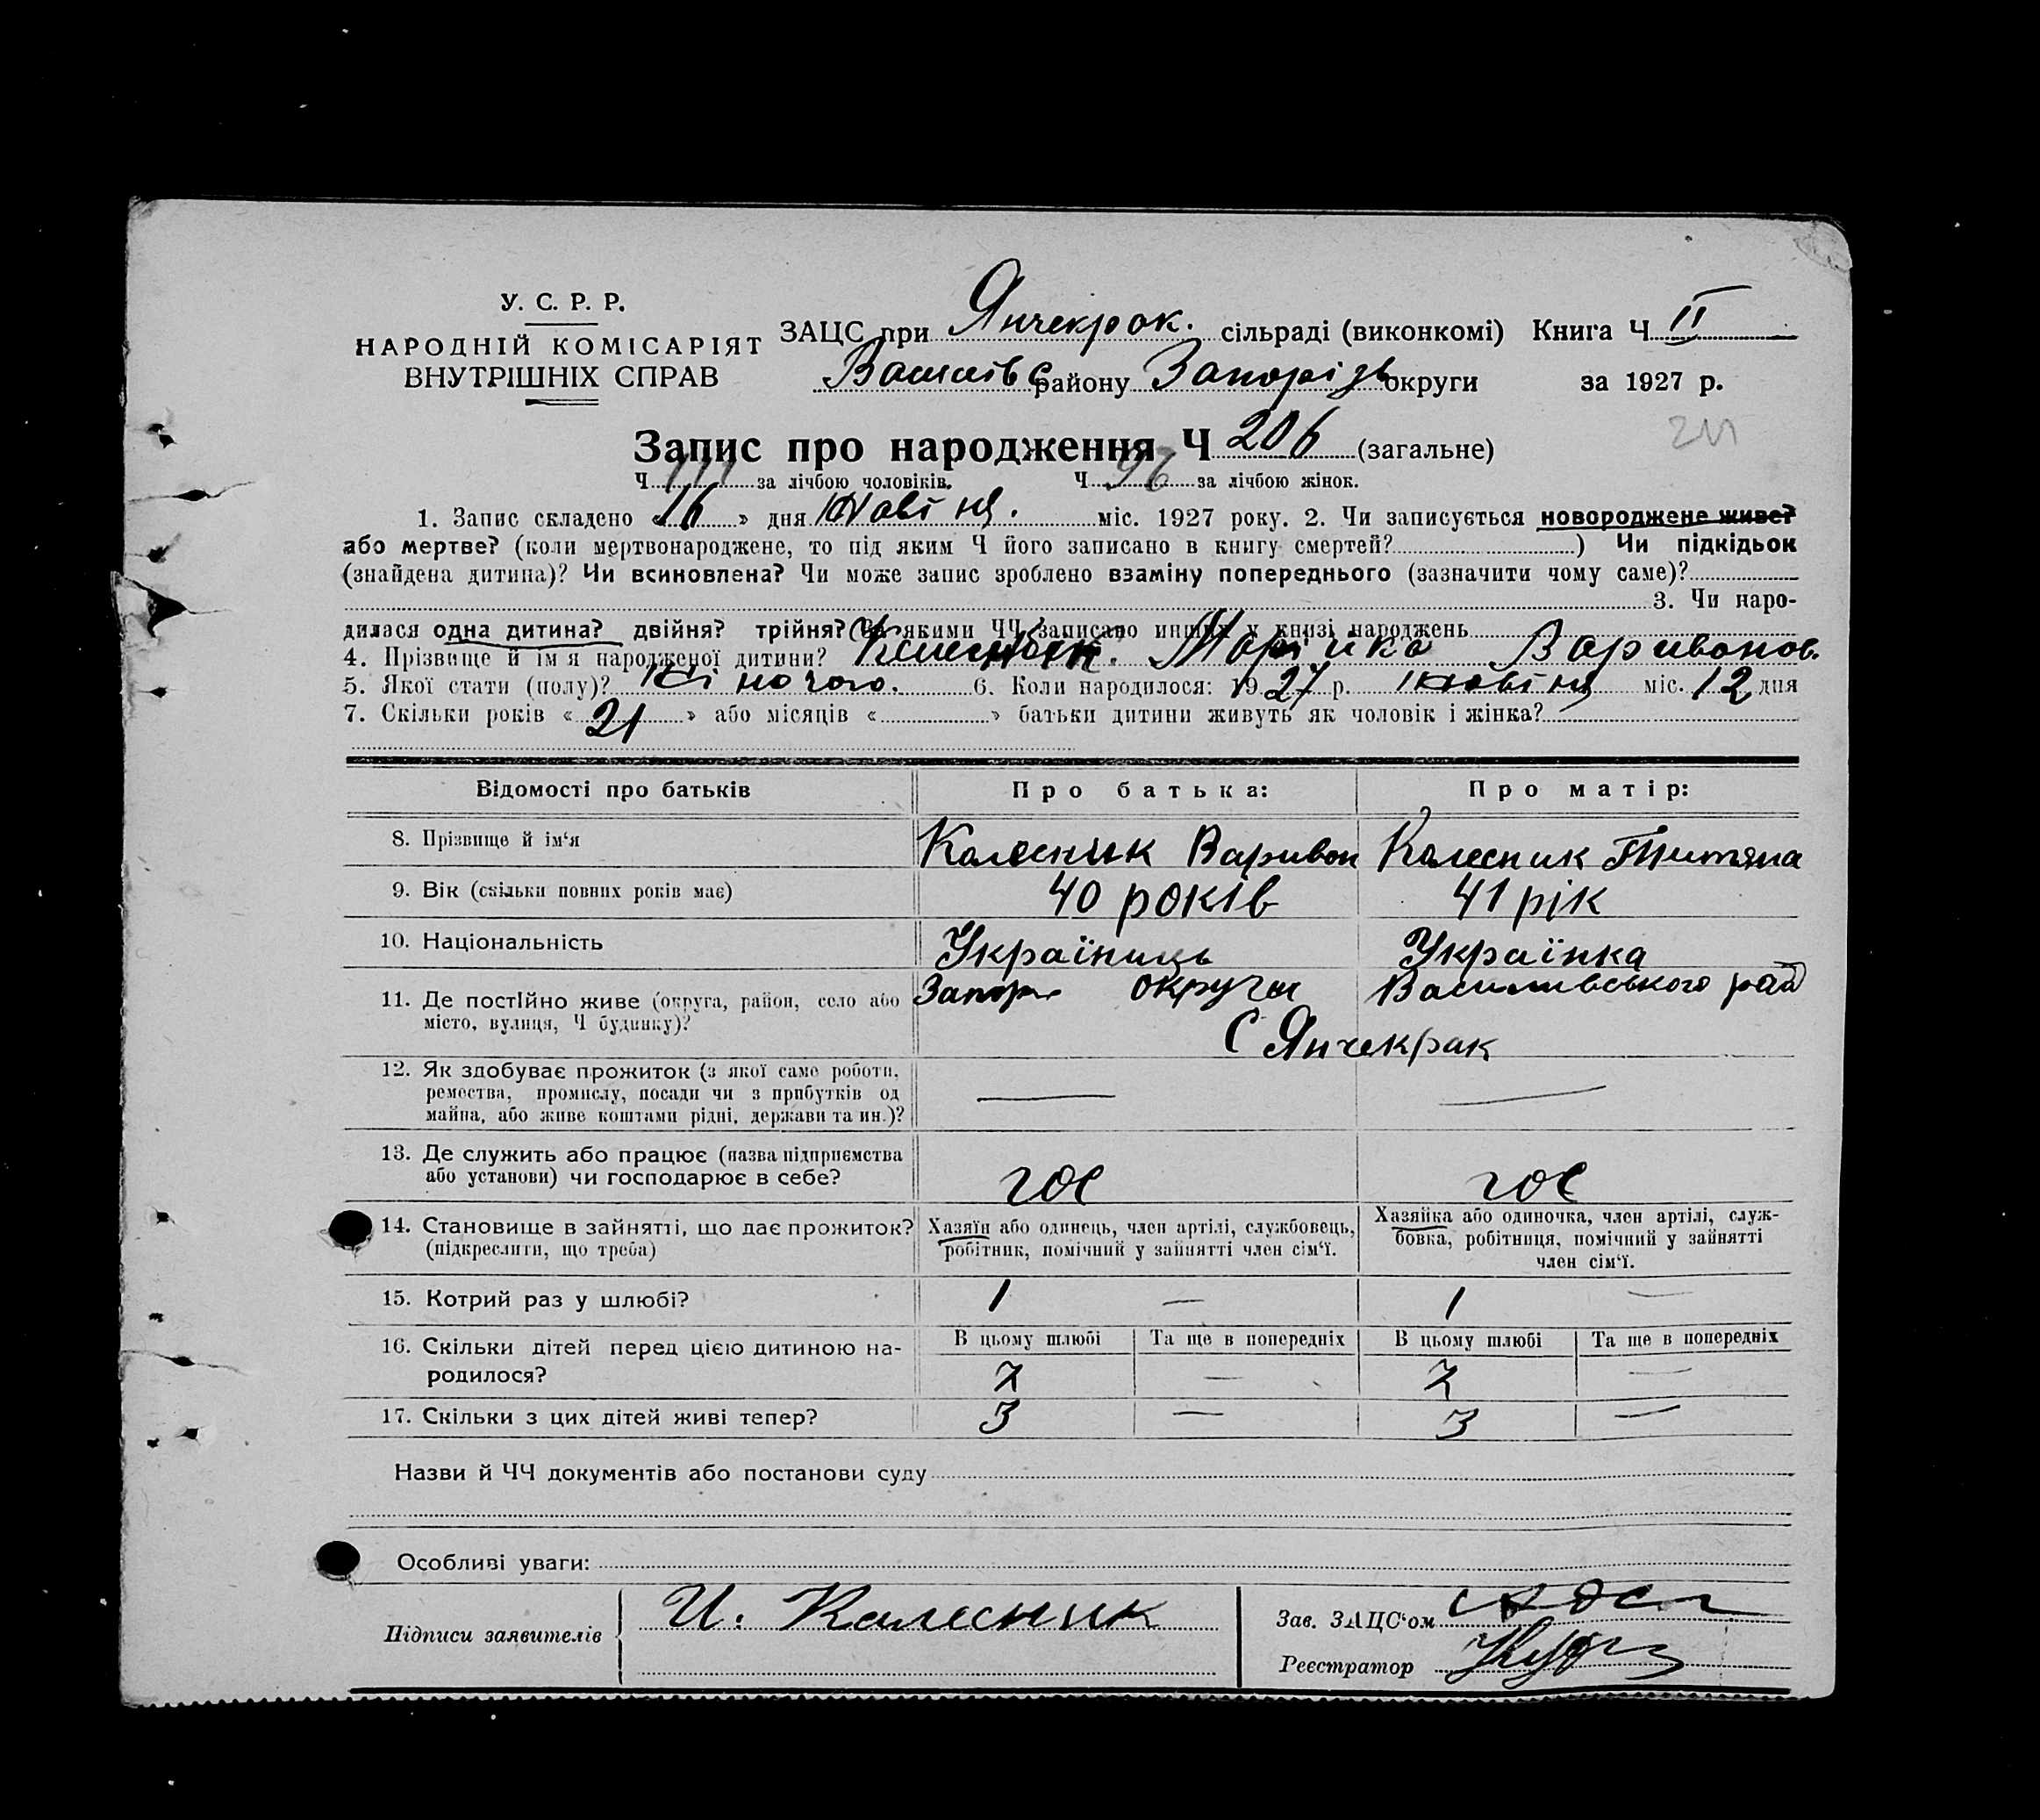 У. С. Р. Р.
НАРОДНІЙ КОМІСАРІЯТ
ВНУТРІШНІХ СПРАВ
ЗАЦС при Янчекрок. сільраді (виконкомі) Книга Ч II
району Запорізь округи за 1927 р.
Запис про народження Ч 206 (загальне)
211
Ч 111 за лічбою чоловіків. Ч 96 за лічбою жінок.
1. Запис складено « 16 » дня міс. 1927 року. 2. Чи записується новороджене живе?
або мертве? (коли мертвонароджене, то під яким Ч його записано в книгу смертей? ) Чи підкідьок
(знайдена дитина)? Чи всиновлена? Чи може запис зроблено взаміну попереднього (зазначити чому саме)?
3. Чи наро-
дилася одна дитина? двійня? трійня? якими ЧЧ записано инших у книзі народжень
4. Прізвище й ім'я народженої дитини? Варивонов.
5. Якої стати (полу)? жіночого. 6. Коли народилося: 1927 р. міс. 12 дня
7. Скільки років « 21 » або місяців « » батьки дитини живуть як чоловік і жінка?
Відомості про батьків Про батька: Про матір:
8. Прізвище й ім'я Колесник Варивон Колесник
9. Вік (скільки повних років має) 40 років 41 рік
10. Національність Україниць Українка
11. Де постійно живе (округа, район, село або Запор округи Василивського рай
місто, вулиця, Ч будинку)? С Янчекрак
12. Як здобуває прожиток (з якої саме роботи,
ремества, промислу, посади чи з прибутків од — —
майна, або живе коштами рідні, держави та ин.)?
13. Де служить або працює (назва підприємства
або установи) чи господарює в себе? гос гос
14. Становище в зайнятті, що дає прожиток? Хазяїн або одинець, член артілі, службовець, Хазяйка або одиночка, член артілі, служ-
(підкреслити, що треба) робітник, помічний у зайнятті член сім'ї. бовка, робітниця, помічний у зайнятті
член сім'ї.
15. Котрий раз у шлюбі? 1 — 1 —
16. Скільки дітей перед цією дитиною на- В цьому шлюбі Та ще в попередніх В цьому шлюбі Та ще в попередніх
родилося? 7 — 7 —
17. Скільки з цих дітей живі тепер? 3 — 3 —
Назви й ЧЧ документів або постанови суду
Особливі уваги:
Підписи заявителів И. Колесник
Зав. ЗАЦС'ом
Реєстратор